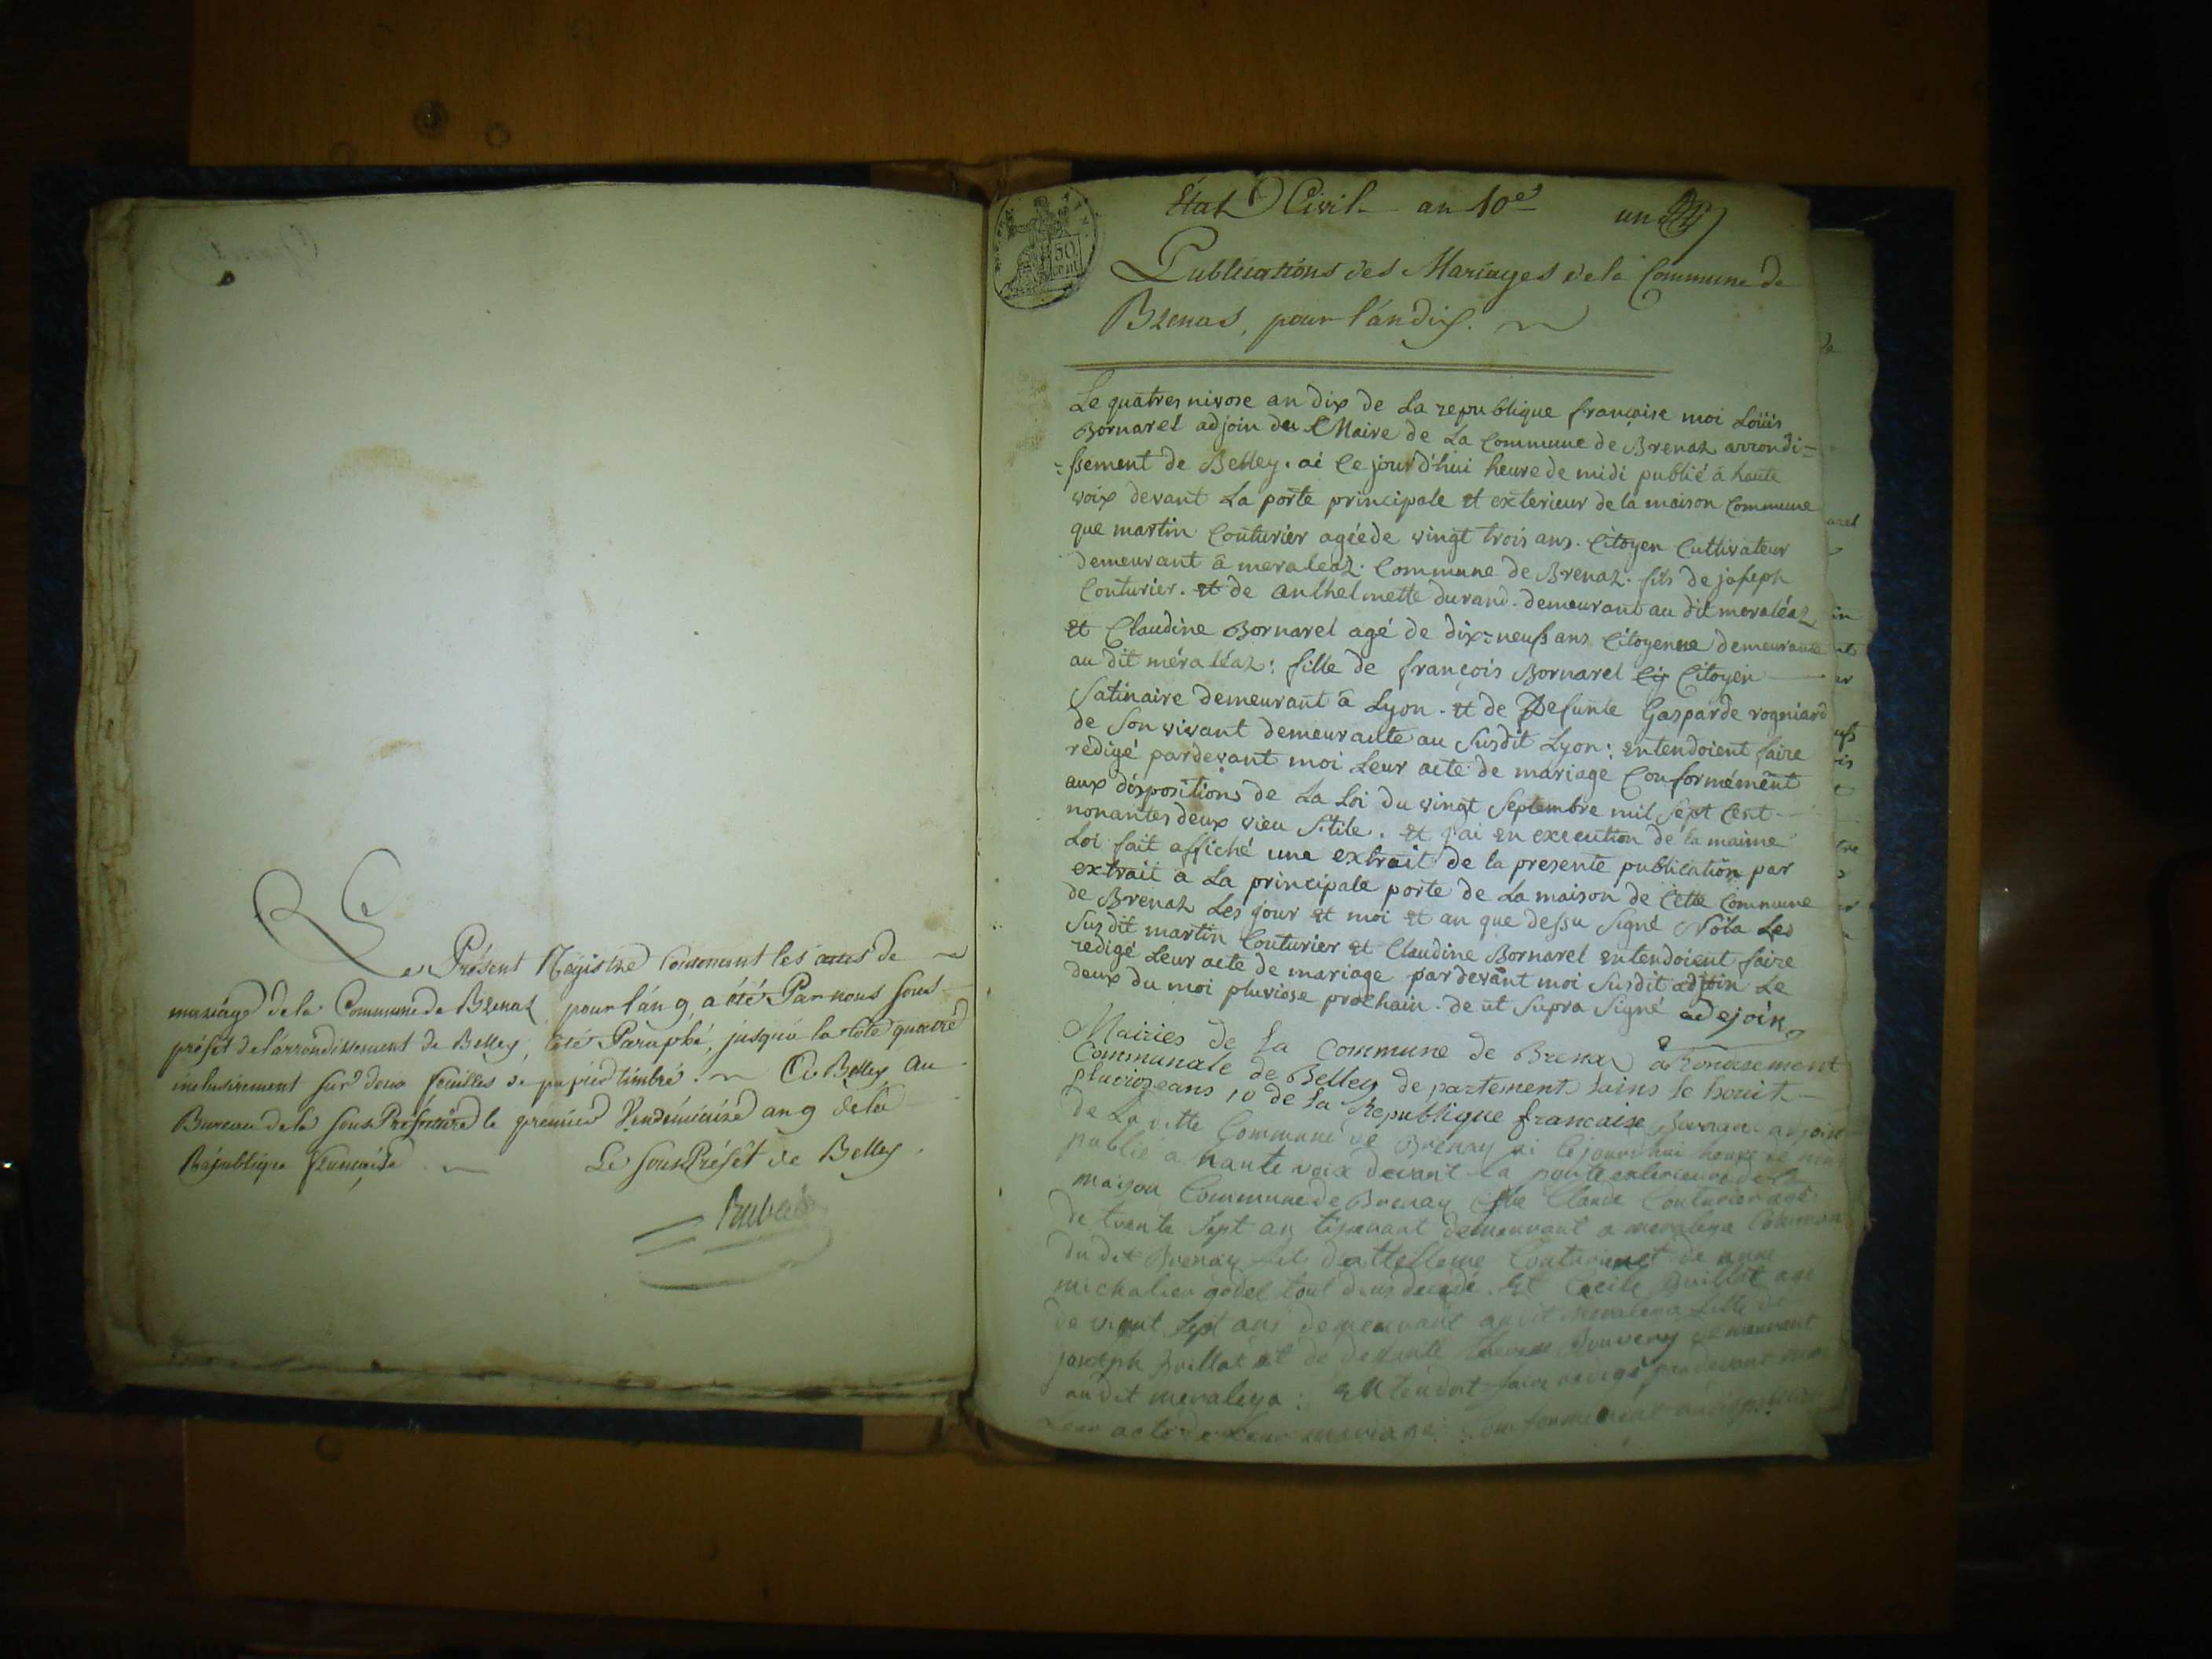 Le Présent Régistre Contenant les actes de
mariage de la Commune de Brenaz pour l'an 9, a été Par nous Sous
préfet de l'arrondissement de Belley, coté Paraphé, jusqu'à la cote quatre
inclusivement sur deux feuilles de papier timbré. A Belley Au
Bureau de la Sous Préfecture le premier Vendémiaire an 9 de la
République Française
Le Sous Préfet de Belley
État Civil an 10e un
50
cent
Publications des Mariages de la Commune de
Brenas, pour l'an dix.
Le quatres nivose an dix de La republique française moi Loüis
Bornarel adjoin du Maire de La Commune de Brenaz arrondi=
=ssement de Belley. ai Ce jourd'hui heure de midi publié à haute
voix devant La porte principale et exterieur de la maison Commune
que martin Couturier agée de vingt trois ans. Citoyen Cultivateur
demeurant à meraleaz. Commune de Brenaz. fils de joseph
Couturier. et de anthelmette durand. demeurant au dit meraléaz
et Claudine Bornarel agé de dix=neufs ans Citoyenne demeurante
au dit méraléaz: fille de françois Bornarel Cig Citoyen
Satinaire demeurant à Lyon. et de Defunte Gasparde rogniard
de Son vivant demeurante au Susdit Lyon: entendoient faire
redigé pardevant moi Leur acte de mariage Conformément
aux dispositions de La Loi du vingt Septembre mil Sept Cent
nonantes deux vieu Stile. et j'ai en execution de la maime
Loi fait affiché une extrait de la presente publication par
extrait à La principale porte de La maison de Cette Commune
de Brenaz Les jour et moi et an que dessu Signé Nota Les
Susdit martin Couturier et Claudine Bornarel entendoient faire
redigé Leur acte de mariage pardevant moi Susdit adjoin Le
deux du moi pluviose prochain. de ut Supra Signé adejoin
Mairies de la Commune de Brenaz arondisement
Communale de Belley de partement Lains le houit
pluviozeans 10 de la Republique francaise adjoin
de La ditte Commune de Brenay ai le jourdhui houre de
publié a haute voix devant la porte exterieure de la
maison Commune de Brenay que Claude Couturier agé
de trente Sept an demeurant a meraleya
du dit Brenay fil Couturier et de anne
michalier godet tout deus decedé. et Cecile Brillat agé
de vignt Sept ans demeurant au dit meraleya fille de
joseph Brillat et de deffunte demeurant
au dit meraleya: entendoit faire redigé par devant
Leur acte de Leur mariage: Conformément